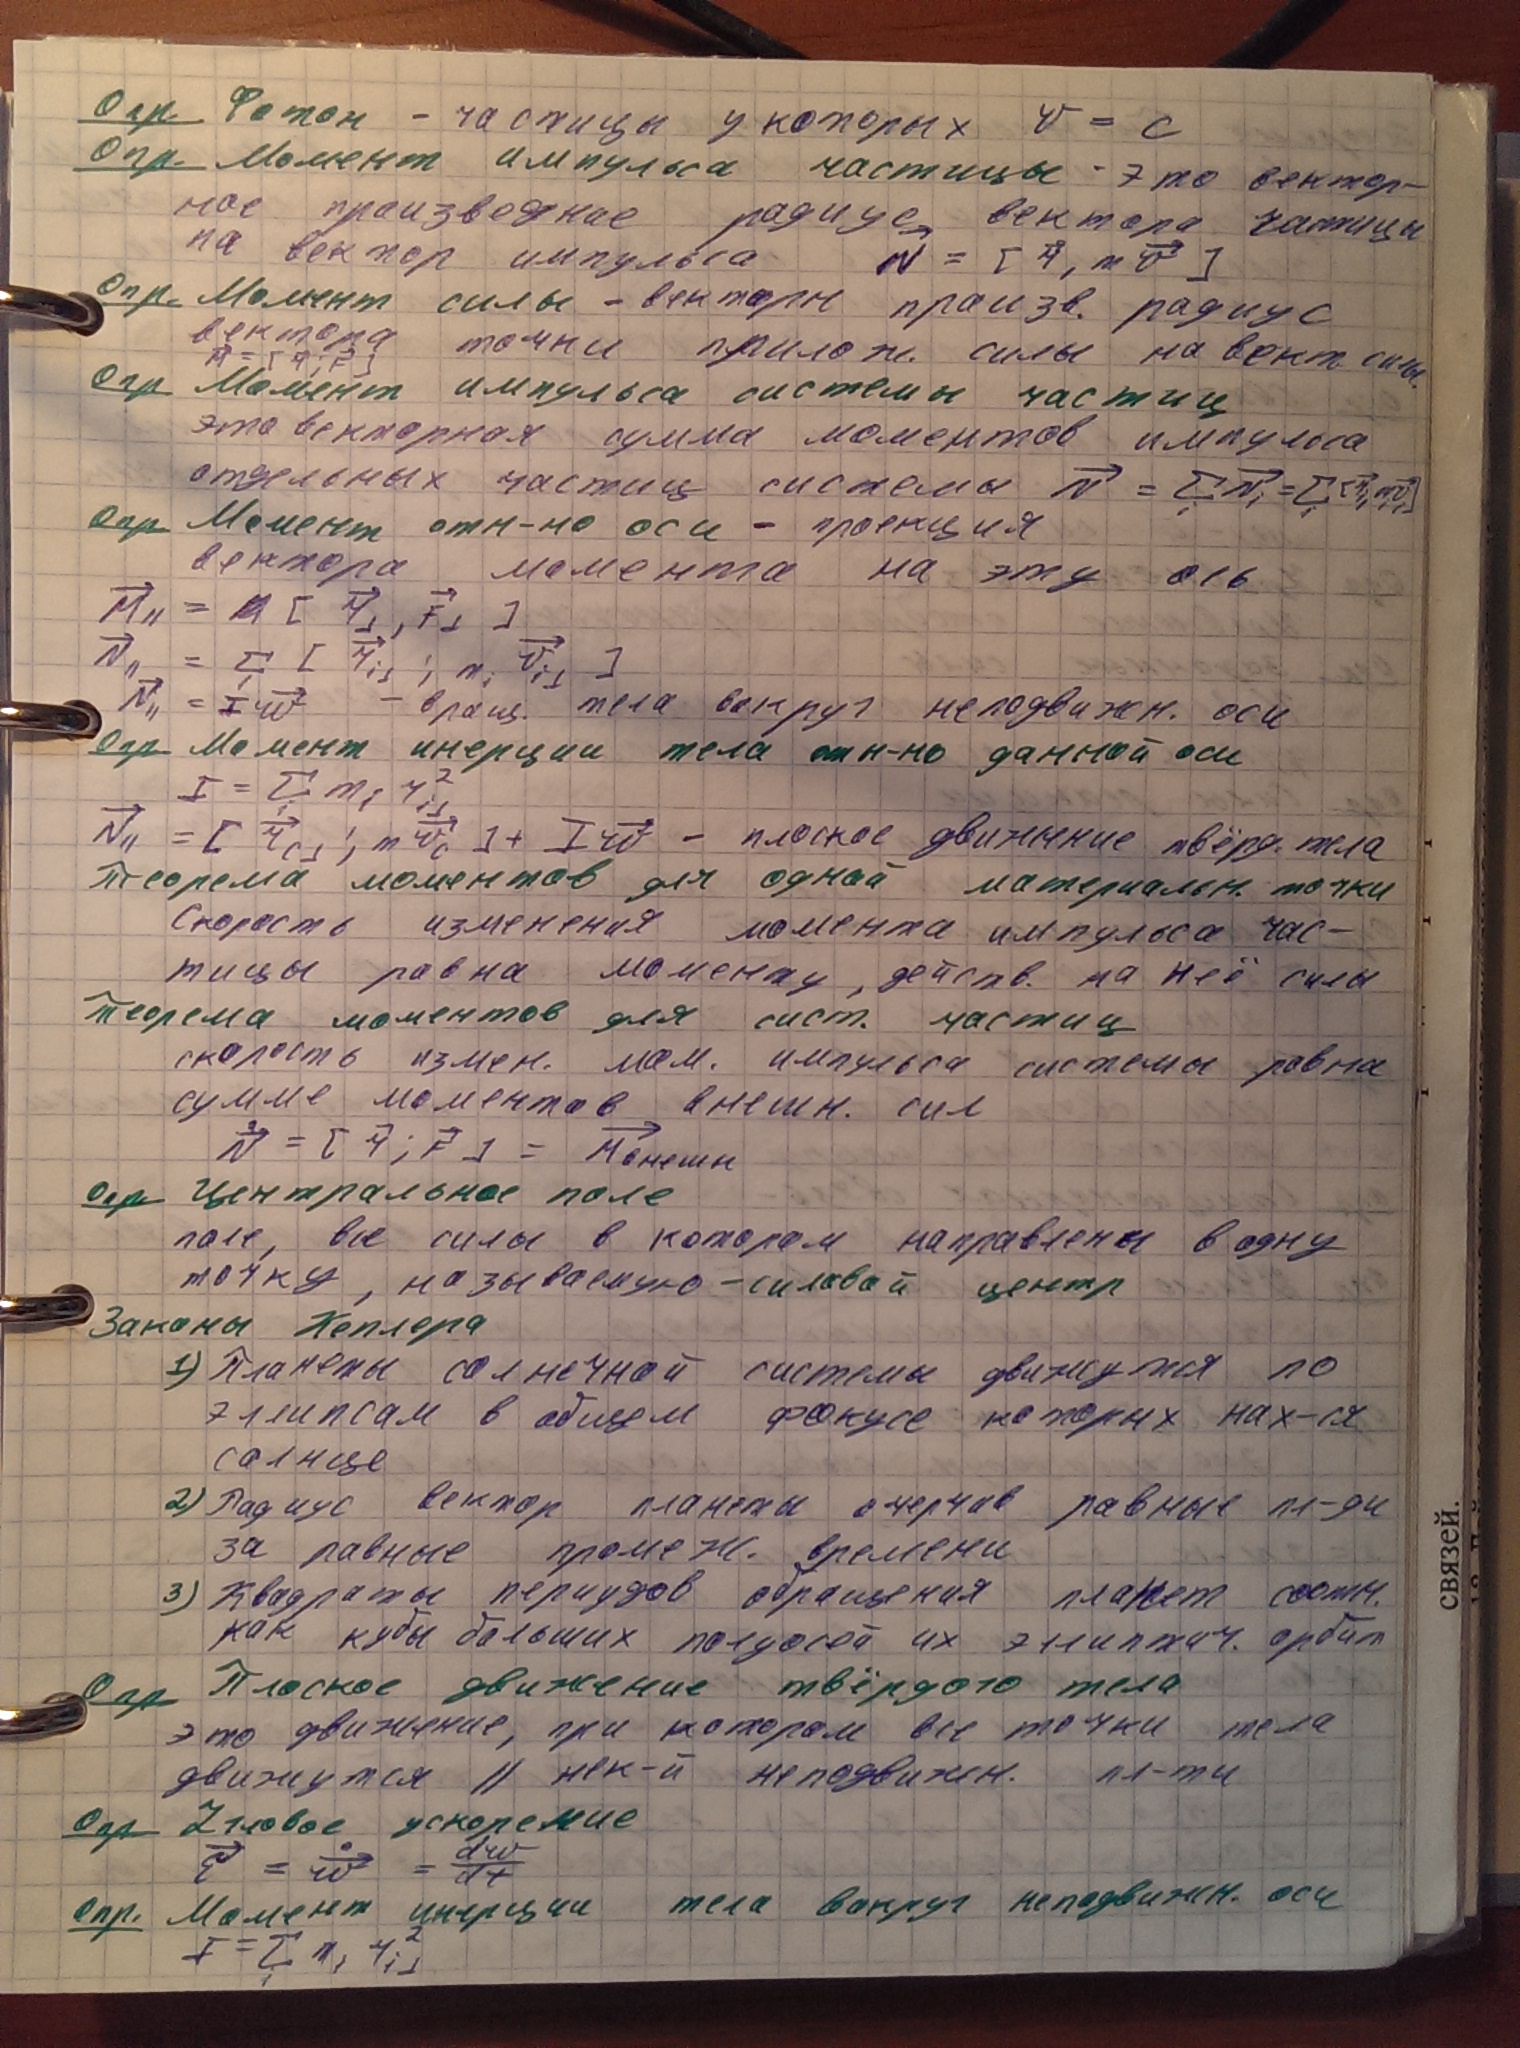 Опр. Фотон - частицы у которых v = c
Опр. Момент импульса частицы - это вектор-
ное произведение радиус вектора частицы
на вектор импульса N⃗ = [ r⃗, m v⃗ ]
Опр. Момент силы - векторн произв. радиус
вектора точки прилож. силы на вект. силы.
M⃗ = [ r⃗; F⃗ ]
Опр Момент импульса системы частиц
это векторная сумма моментов импульса
отдельных частиц системы N⃗ = Σᵢ N⃗ᵢ = Σᵢ [r⃗ᵢ, mᵢv⃗ᵢ]
Опр Момент отн-но оси - проекция
вектора момента на эту ось
M⃗∥ = [ r⃗⊥, F⃗⊥ ]
N⃗∥ = Σᵢ [ r⃗ᵢ⊥ ; mᵢ v⃗ᵢ⊥ ]
N⃗∥ = I w⃗ - вращ. тела вокруг неподвижн. оси
Опр Момент инерции тела отн-но данной оси
I = Σᵢ mᵢ rᵢ⊥²
N⃗∥ = [ r⃗c⊥ ; m v⃗c ] + I w⃗ - плоское движение твёрд. тела
Теорема моментов для одной материальн. точки
Скорость изменения момента импульса час-
тицы равна моменту, действ. на неё силы
Теорема моментов для сист. частиц
скорость измен. мом. импульса системы равна
сумме моментов внешн. сил
N⃗̇ = [ r⃗ ; F⃗ ] = M⃗внешн
Опр Центральное поле
поле, все силы в котором направлены в одну
точку, называемую - силовой центр
Законы Кеплера
1) Планеты солнечной системы движутся по
эллипсам в общем фокусе которых нах-ся
солнце
2) Радиус вектор планеты очерчив равные пл-ди
за равные промеж. времени
3) Квадраты периудов обращения планет соотн.
как кубы больших полуосей их эллиптич. орбит
Опр Плоское движение твёрдого тела
это движение, при котором все точки тела
движутся // нек-й неподвижн. пл-ти
Опр Угловое ускорение
ε⃗ = w⃗̇ = dw/dt
Опр. Момент инерции тела вокруг неподвижн. оси
I = Σᵢ mᵢ rᵢ⊥²
связей.